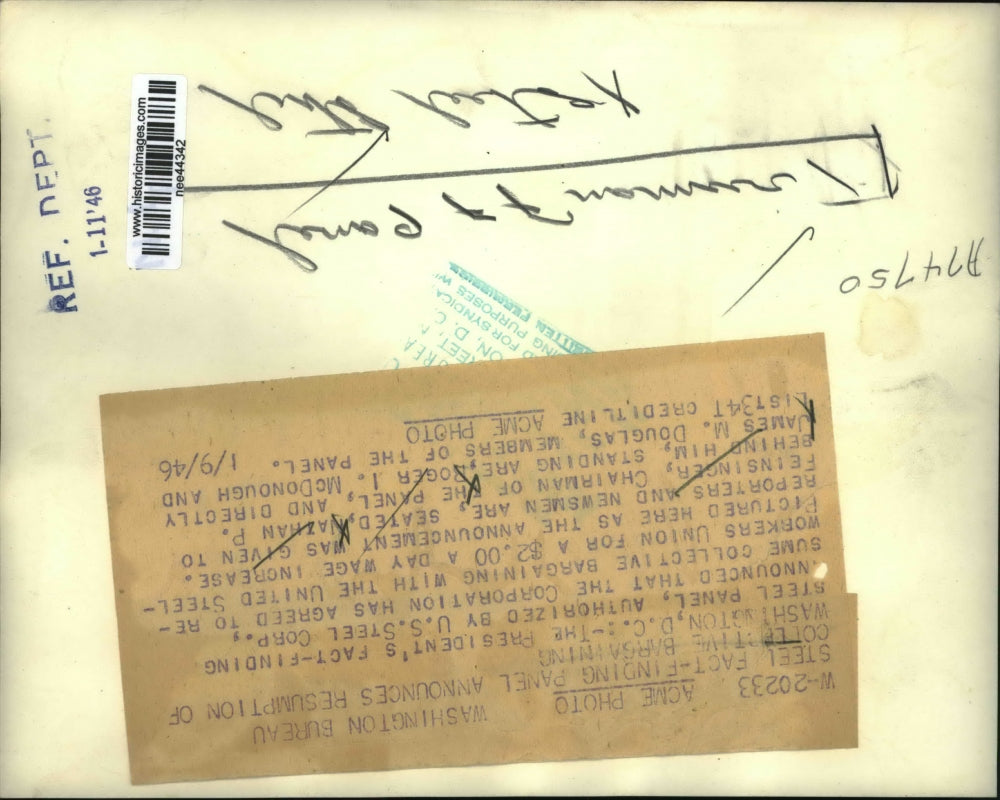 REF. DEPT.
1-11'46
www.historicimages.com
nee44342
A74750
Truman FF Panel
UREA
EET,
ON, D. C.
FOR SYNDICA
ING PURPOSES W
ITTEN PERMISSION
W-20233 ACME PHOTO WASHINGTON BUREAU
STEEL FACT-FINDING PANEL ANNOUNCES RESUMPTION OF
COLLECTIVE BARGAINING
WASHINGTON, D.C.:-THE PRESIDENT'S FACT-FINDING
STEEL PANEL, AUTHORIZED BY U.S.STEEL CORP.,
ANNOUNCED THAT THE CORPORATION HAS AGREED TO RE-
SUME COLLECTIVE BARGAINING WITH THE UNITED STEEL-
WORKERS UNION FOR A $2.00 A DAY WAGE INCREASE.
PICTURED HERE AS THE ANNOUNCEMENT WAS GIVEN TO
REPORTERS AND NEWSMEN ARE, SEATED, NATHAN P.
FEINSINGER, CHAIRMAN OF THE PANEL, AND DIRECTLY
BEHIND HIM, STANDING ARE, ROGER I. MCDONOUGH AND
JAMES M. DOUGLAS, MEMBERS OF THE PANEL. 1/9/46
LIST34T CREDITLINE ACME PHOTO